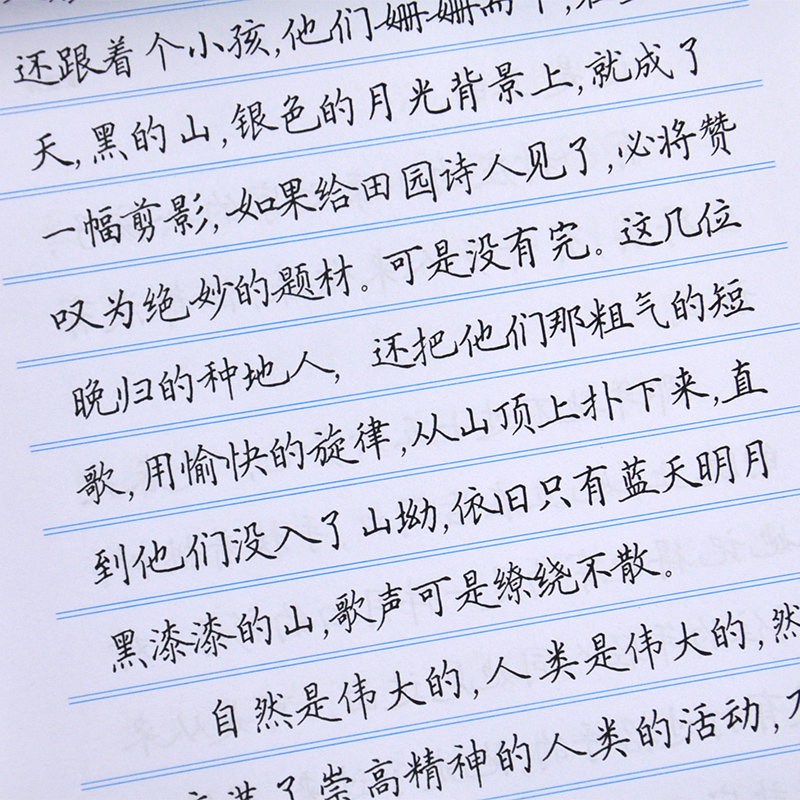 还跟着个小孩,他们姗姗而下,在
天,黑的山,银色的月光背景上,就成了
一幅剪影,如果给田园诗人见了,必将赞
叹为绝妙的题材。可是没有完。这几位
晚归的种地人,还把他们那粗气的短
歌,用愉快的旋律,从山顶上扑下来,直
到他们没入了山坳,依旧只有蓝天明月
黑漆漆的山,歌声可是缭绕不散。
自然是伟大的,人类是伟大的,然
满了崇高精神的人类的活动,